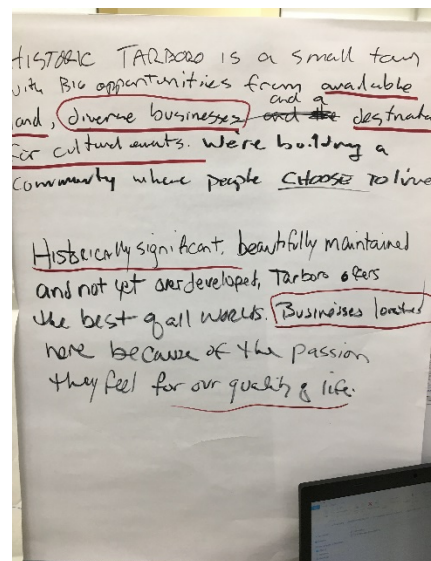 HISTORIC TARBORO IS a small town
with BIG opportunities from available
land, diverse businesses and a destinat
for cultural events. We're building a
community where people CHOOSE to live
Historically significant, beautifully maintained
and not yet overdeveloped, Tarboro offers
the best of all worlds. Businesses located
here because of the passion
they feel for our quality of life.